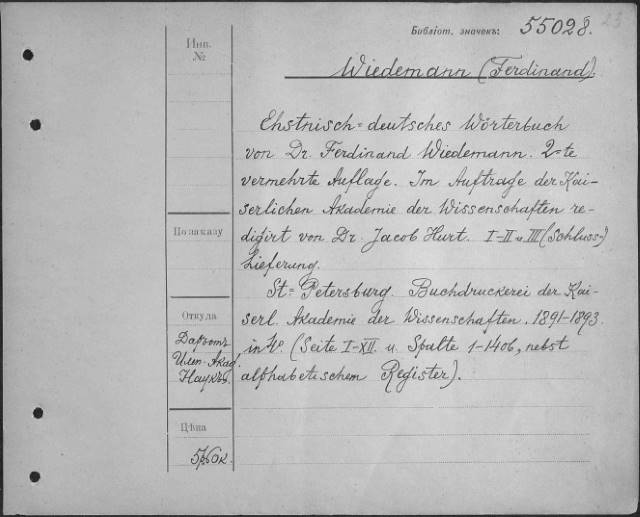 Библіот. значекъ: 55028. 23
Инв.
№
Wiedemann (Ferdinand).
Ehstnisch-deutsches Wörterbuch
von Dr. Ferdinand Wiedemann. 2=te
vermehrte Auflage. Im Auftrage der Kai-
serlichen Akademie der Wissenschaften re-
digirt von Dr. Jacob Hurt. I-II u. III (Schluss-)
Lieferung.
St=Petersburg. Buchdruckerei der Kai-
serl. Akademie der Wissenschaften. 1891-1893.
in 4º. (Seite I-XII. u. Spalte 1-1406, nebst
alphabetischem Register).
По заказу
Откуда
Даръ
Акад.
Наукъ.
Цѣна